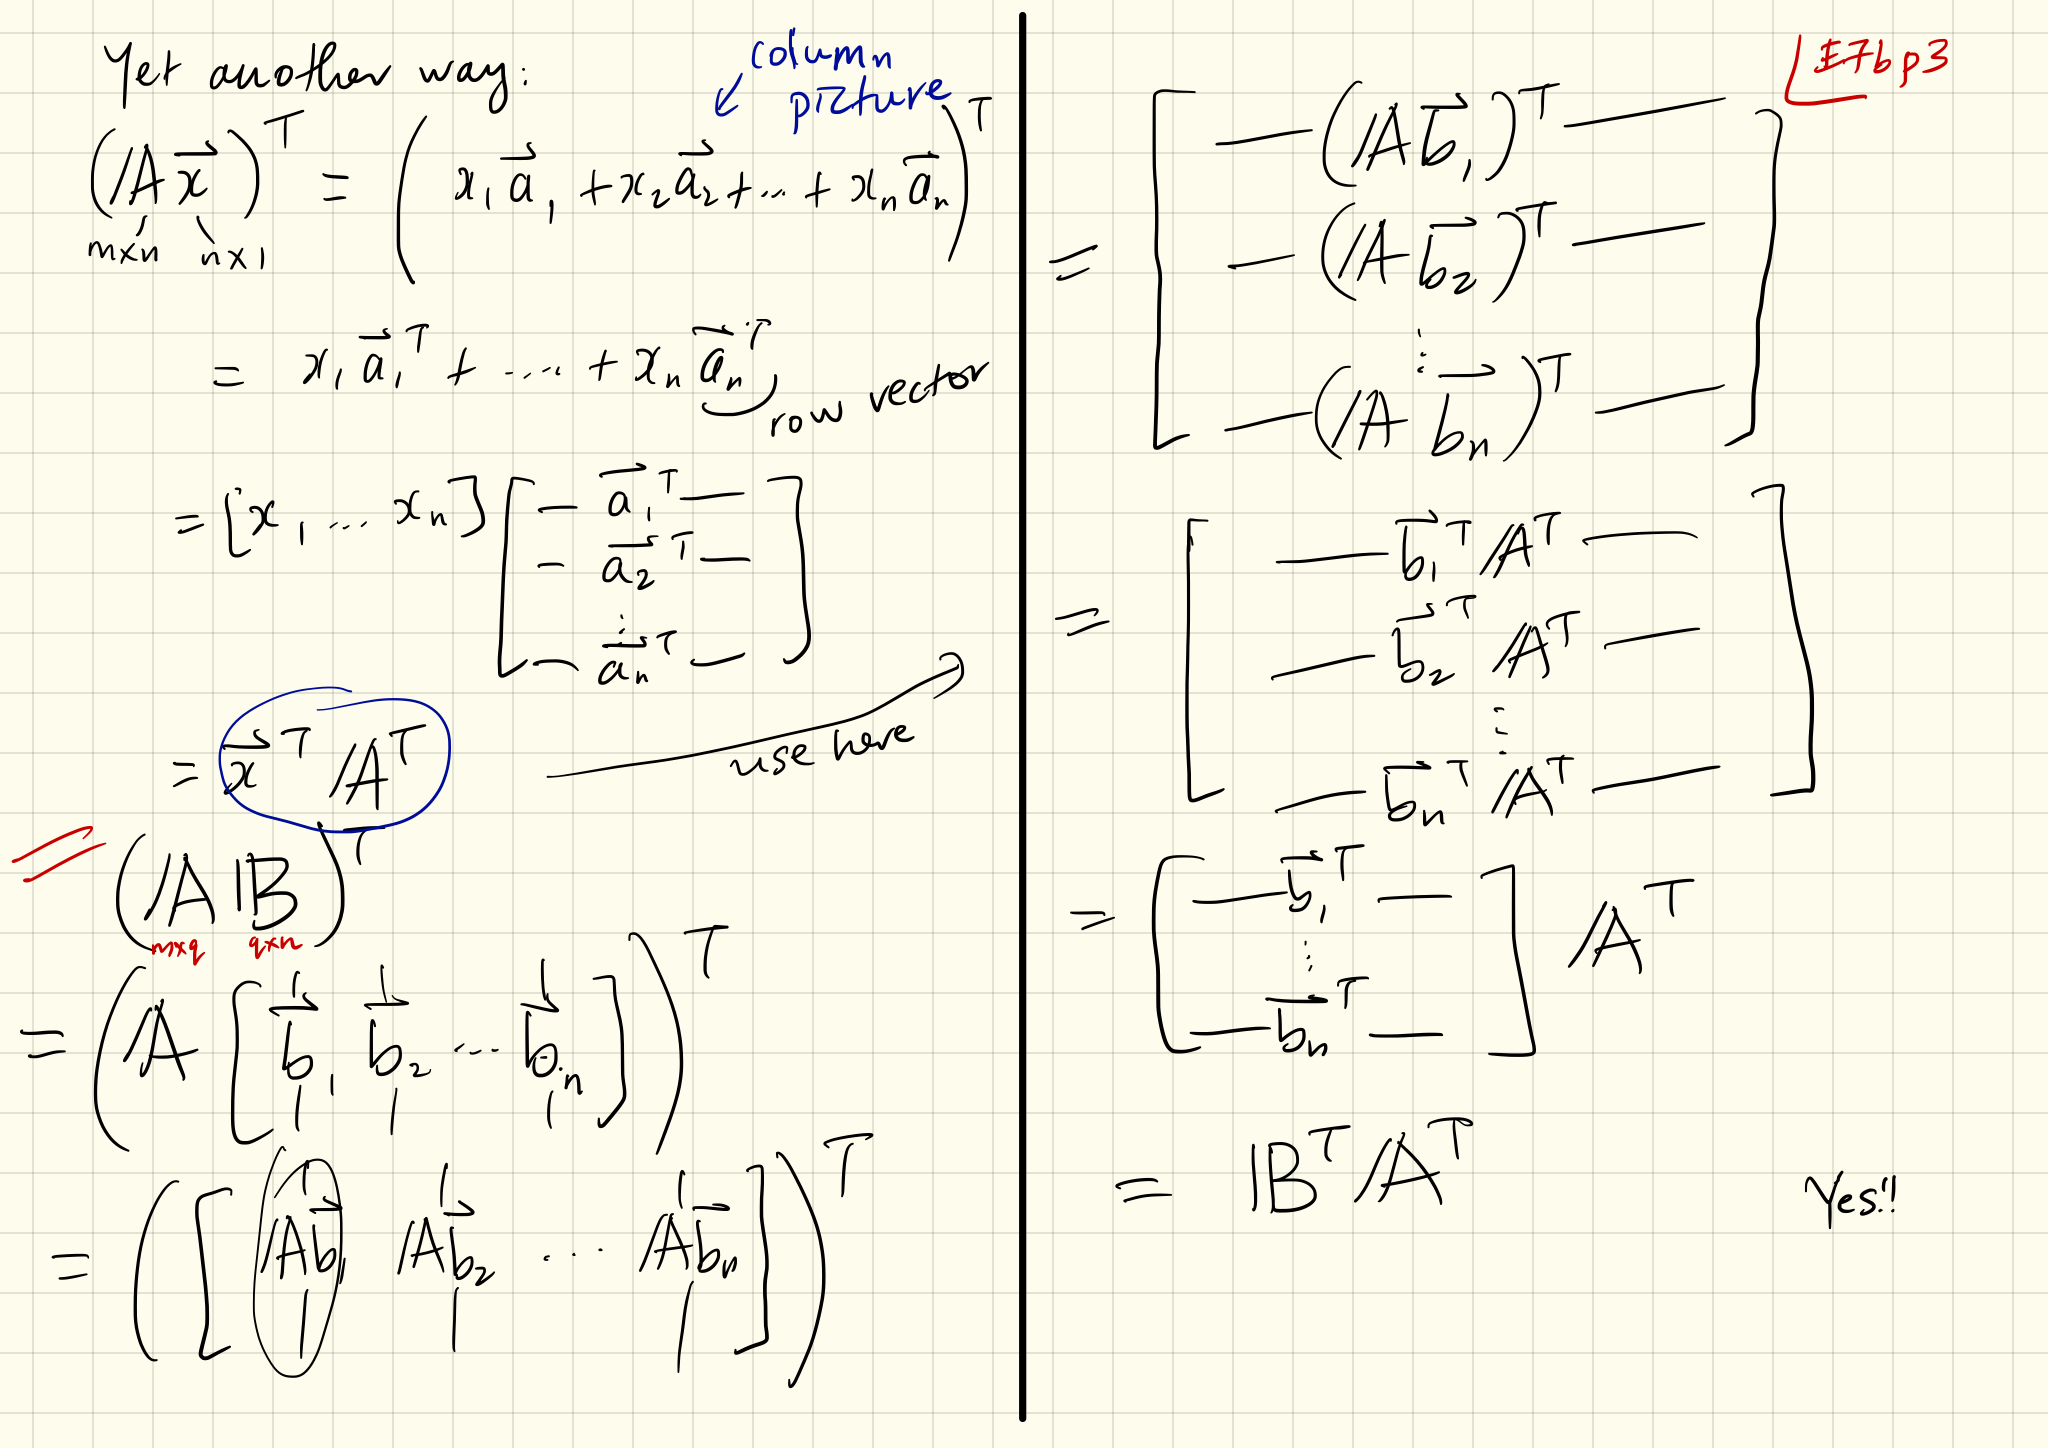 Yet another way:
column
picture
(𝔸x⃗)ᵀ = (x₁a⃗₁ + x₂a⃗₂ + ... + xₙa⃗ₙ)ᵀ
m×n n×1
= x₁a⃗₁ᵀ + ..... + xₙa⃗ₙᵀ
row vector
= [x₁ ... xₙ] [ — a⃗₁ᵀ —
— a⃗₂ᵀ —
⋮
— a⃗ₙᵀ — ]
= x⃗ᵀ 𝔸ᵀ
use here
(𝔸 𝔹)ᵀ
m×q q×n
= (𝔸 [ b⃗₁ b⃗₂ ... b⃗ₙ ])ᵀ
= ([ 𝔸b⃗₁ 𝔸b⃗₂ ... 𝔸b⃗ₙ ])ᵀ
E7b p3
= [ — (𝔸b⃗₁)ᵀ —
— (𝔸b⃗₂)ᵀ —
⋮
— (𝔸b⃗ₙ)ᵀ — ]
= [ — b⃗₁ᵀ 𝔸ᵀ —
— b⃗₂ᵀ 𝔸ᵀ —
⋮
— b⃗ₙᵀ 𝔸ᵀ — ]
= [ — b⃗₁ᵀ —
⋮
— b⃗ₙᵀ — ] 𝔸ᵀ
= 𝔹ᵀ 𝔸ᵀ
Yes!!